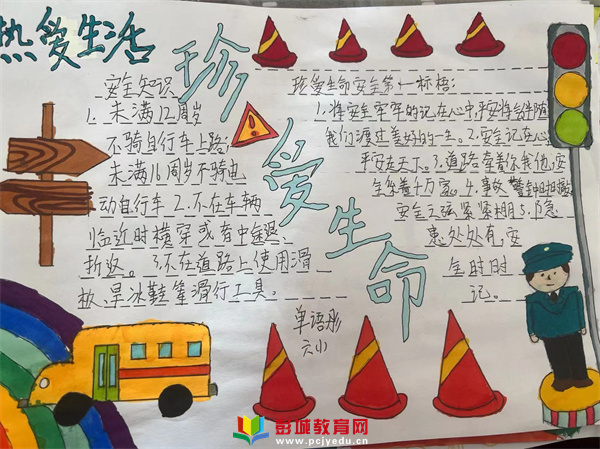 热爱生活
珍爱生命
安全知识
1. 未满12周岁
不骑自行车上路
未满16周岁不骑电
动自行车 2. 不在车辆
临近时横穿或者中途
折返。3.不在道路上使用滑
板、旱冰鞋等滑行工具。
珍爱生命安全第一标语:
1.将安全牢牢的记在心中,平安将会伴随
我们渡过美好的一生。2.安全记在心
平安走天下。3.道路牵着你我他,安
全系着千万家。4.事故警钟时时
安全之弦紧紧绷5.隐
患处处有,安
全时时
记。
单语彤
六小
彭城教育网
www.pcjyedu.cn